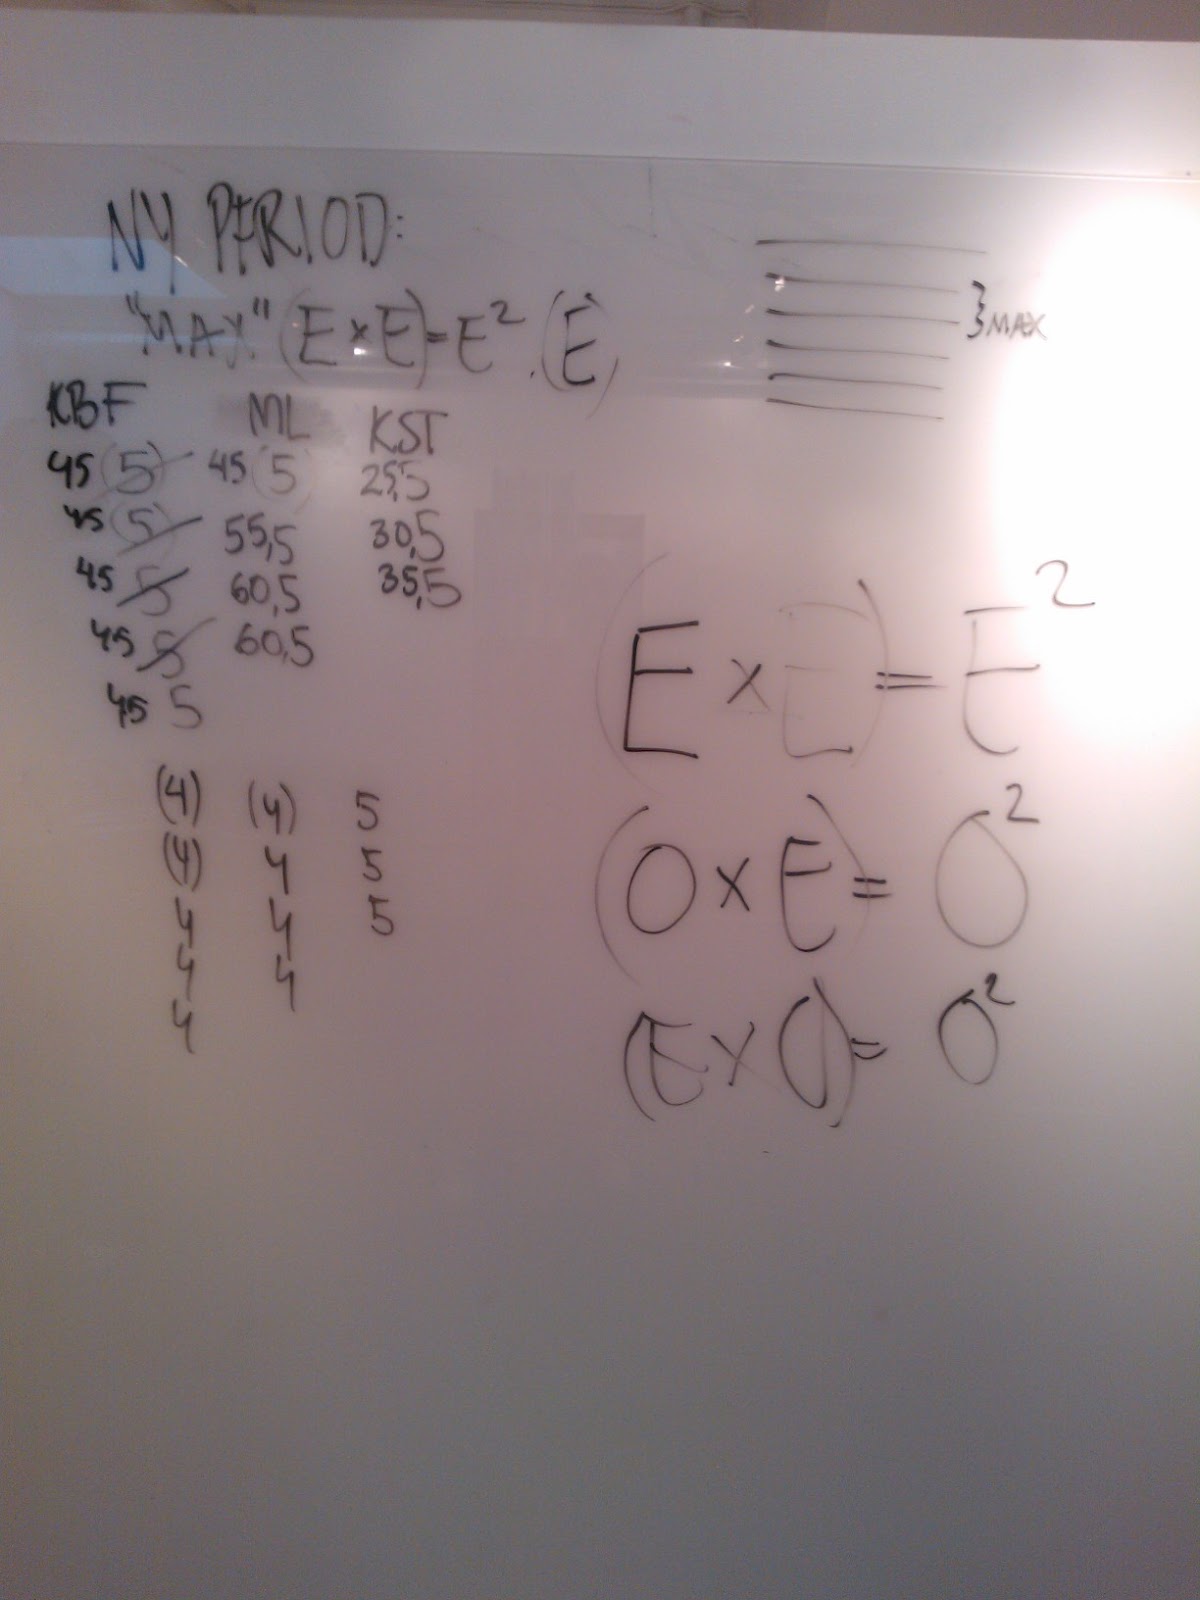 NY PERIOD:
"MAX" (E x E) = E² . (E)
} MAX
KBF ML KST
45 (5) 45 (5) 25,5
45 (5) 55,5 30,5
45 5 60,5 35,5
45 5 60,5
45 5
(E x E) = E²
(4) (4) 5
(4) 4 5
4 4 5
4 4
4
(O x E) = O²
(E x O) = O²